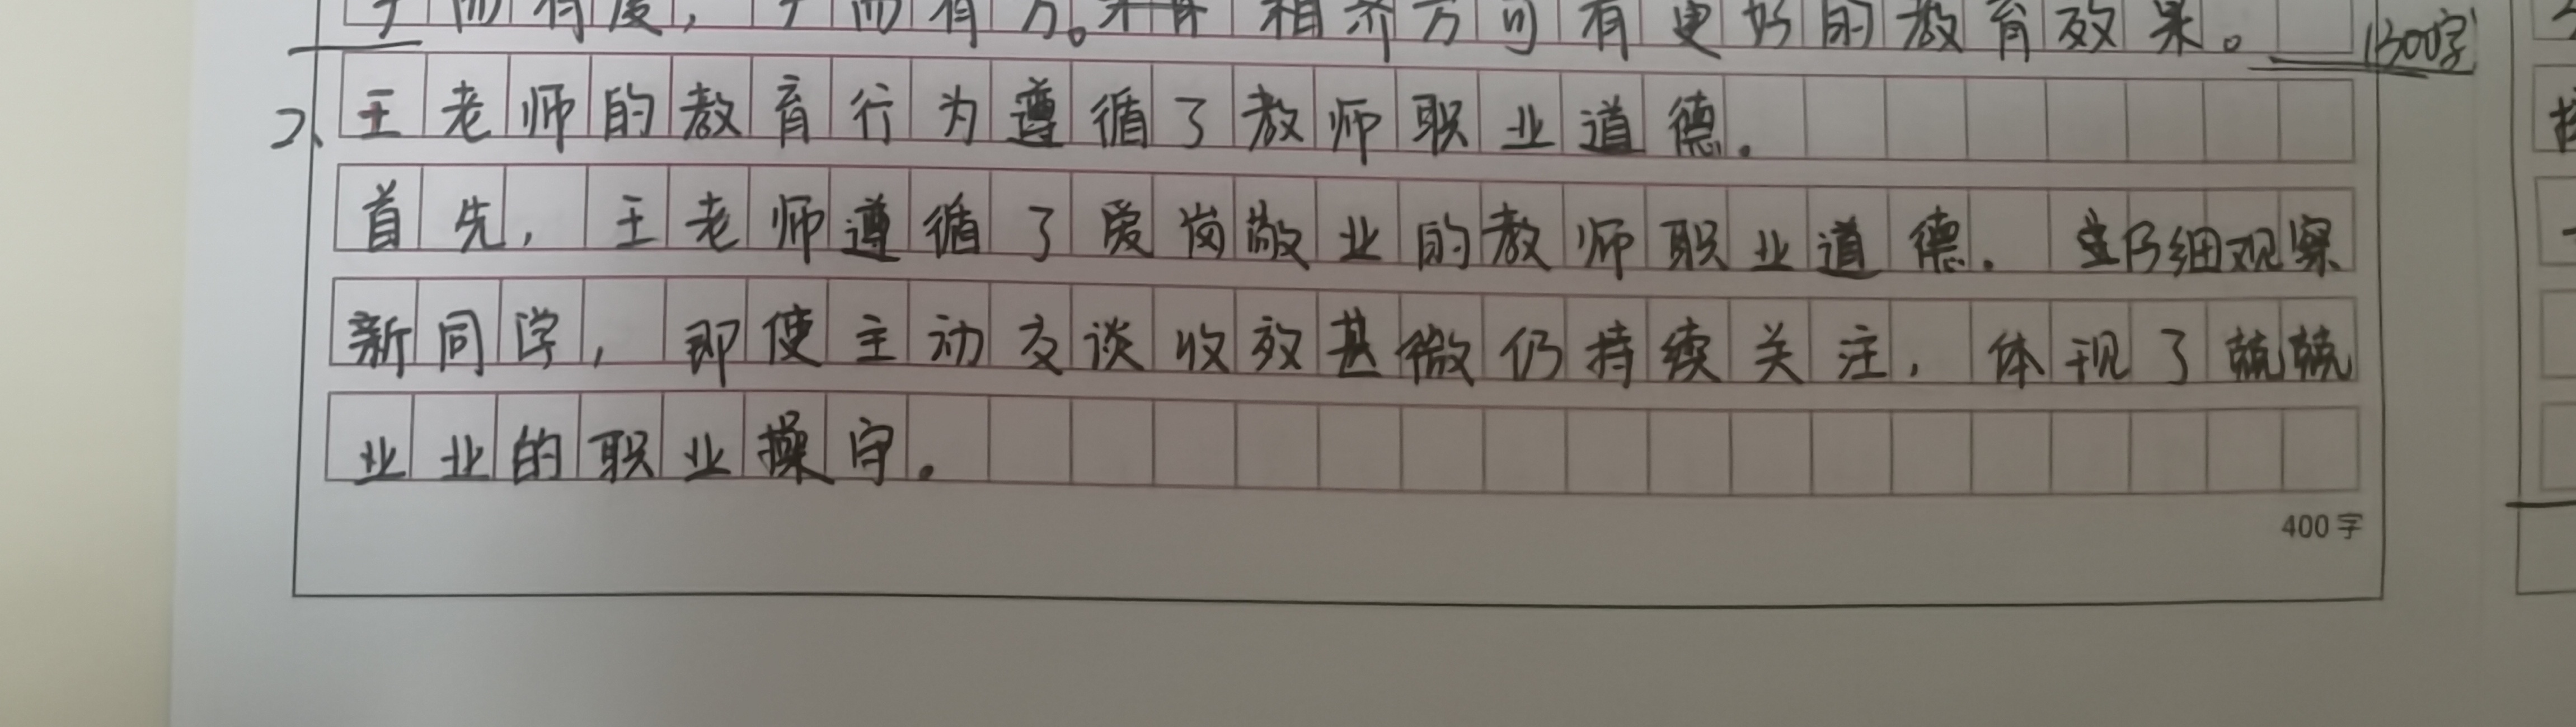 于而有度,于而有方。相济方可有更好的教育效果。 1300字
2、王老师的教育行为遵循了教师职业道德。
首先,王老师遵循了爱岗敬业的教师职业道德。仔细观察
新同学,即使主动交谈收效甚微仍持续关注,体现了兢兢
业业的职业操守。
400字